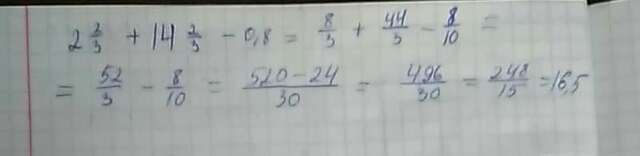 2 2/3 + 14 2/3 - 0,8 = 8/3 + 44/3 - 8/10 =
= 52/3 - 8/10 = 520-24/30 = 496/30 = 248/15 = 16,5